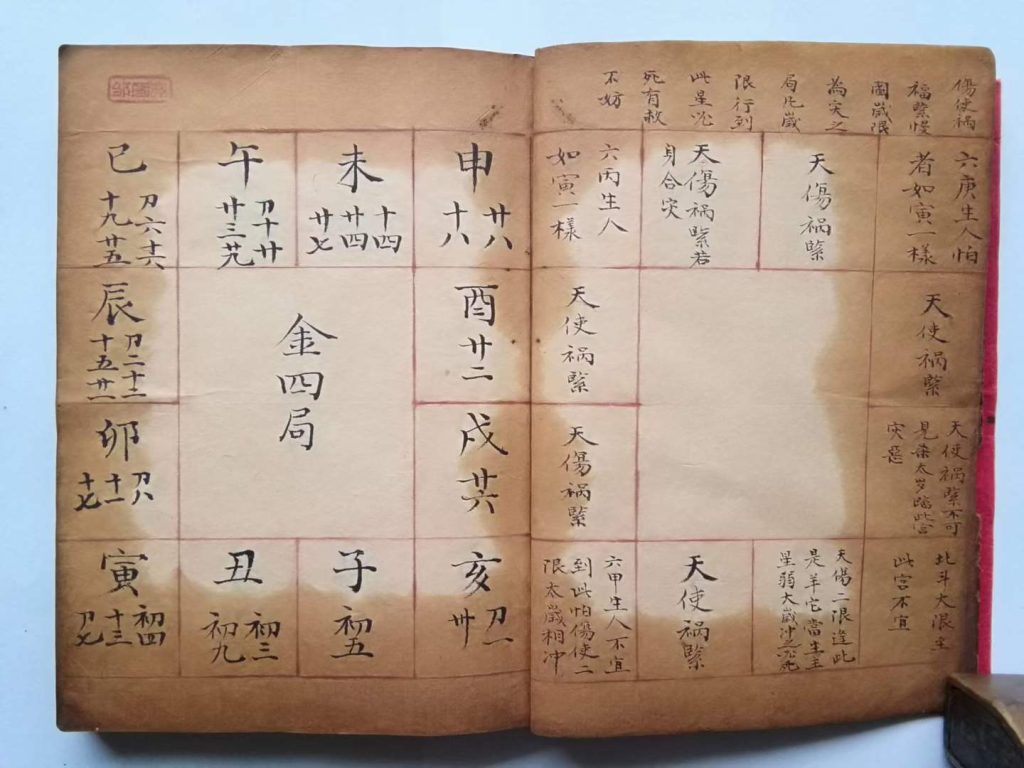 傷使祸
福緊慢
圖歲限
為災之
局 歲
限行到
此星
死有救
不妨
六庚生人怕
者如寅一樣
天傷祸緊
天傷祸緊若
身合災
六丙生人
如寅一樣
天使祸緊
天使祸緊
天使祸緊不可
見 太岁臨此宫
災惡
天傷祸緊
北斗大限主
此宮不宜
天傷二限逢此
是羊它當生主
星弱大歲沖 必死
天使祸緊
六甲生人不宜
到此怕傷使二
限太歲相沖
申
廿八
十八
未
十四
廿四
廿七
午
刀十廿
廿三廿九
巳
刀六十六
十九廿五
酉廿二
金四局
辰
刀二十二
十五廿一
戌廿六
卯
刀八
十一
十七
亥
刀一
卅
子
初五
丑
初三
初九
寅
初四
十三
刀七